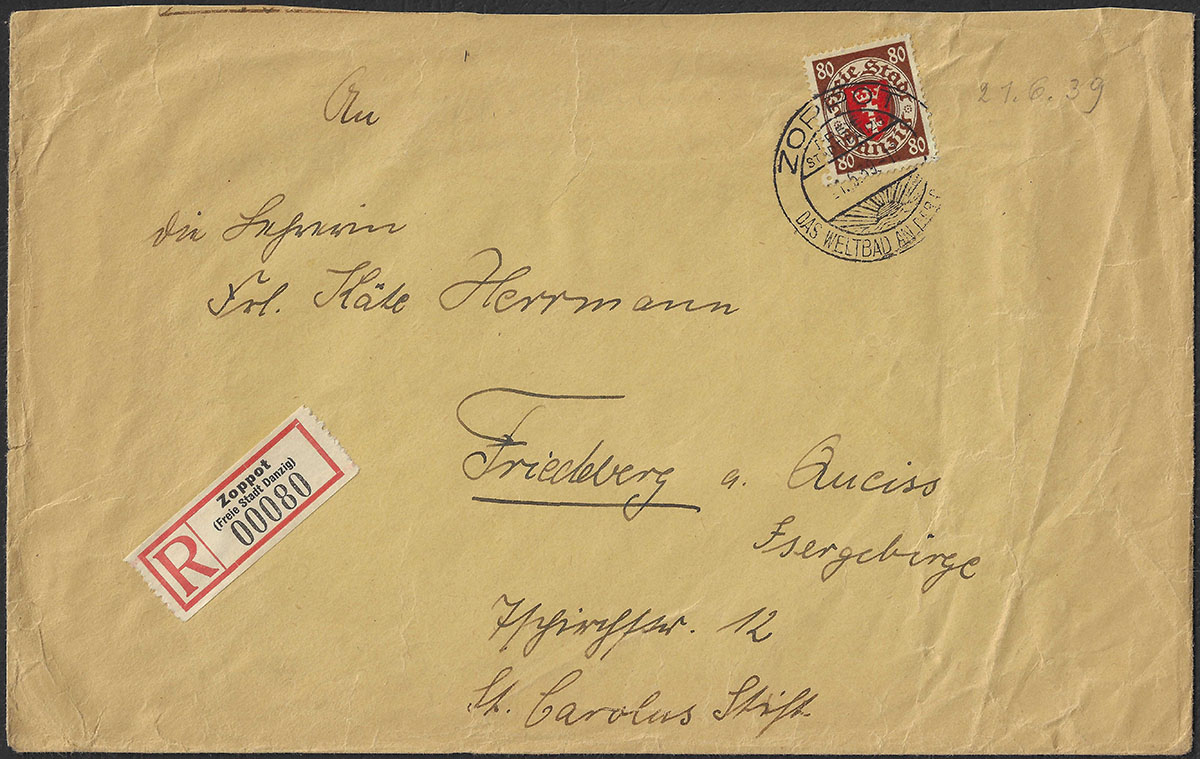 An
21.6.39
80 80
Freie Stadt
Danzig
80 80
ZOPPOT
DAS WELTBAD AN DER
die Lehrerin
Frl. Käte Herrmann
Friedeberg a. Queiss
Isergebirge
Tschirchstr. 12
St. Carolus Stift.
Zoppot
(Freie Stadt Danzig)
R 00080